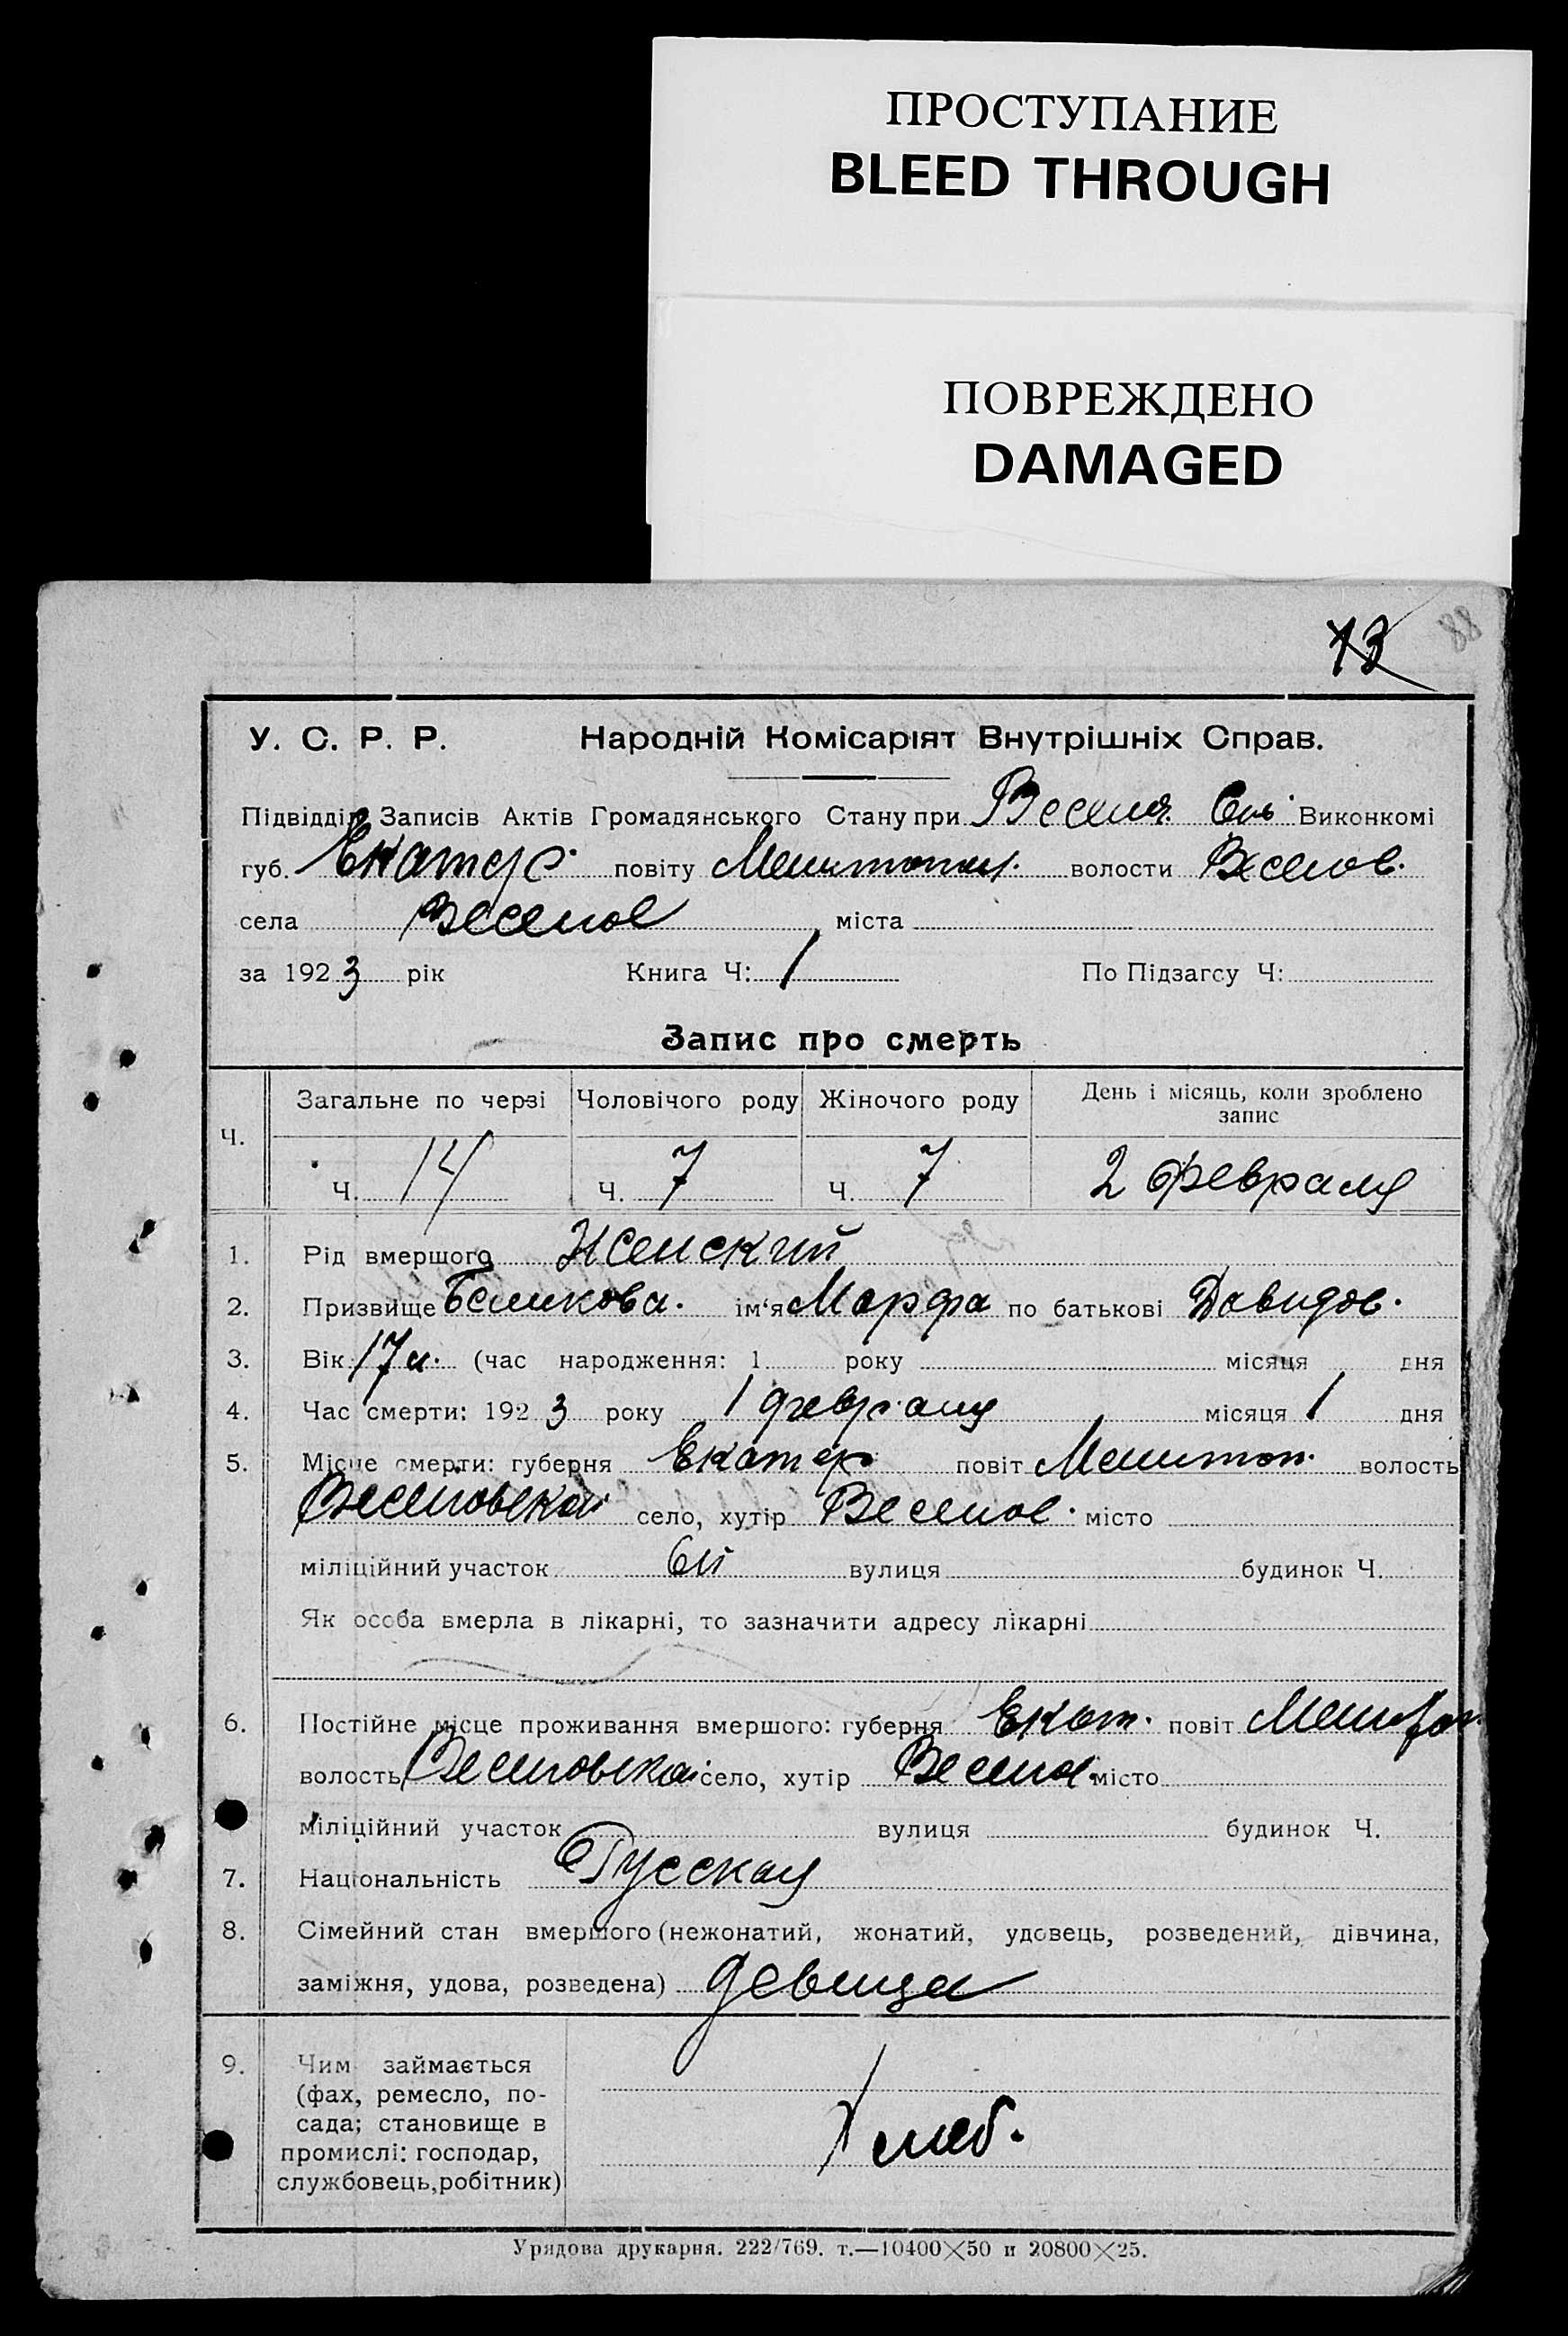 ПРОСТУПАНИЕ
BLEED THROUGH
ПОВРЕЖДЕНО
DAMAGED
13 88
У. С. Р. Р. Народній Комісаріят Внутрішніх Справ.
Підвідділ Записів Актів Громадянського Стану при Весел. Виконкомі
губ. Екатер. повіту Мелитопол. волости Веселов.
села Веселое міста
за 1923 рік Книга Ч: 1 По Підзагсу Ч:
Запис про смерть
Ч. Загальне по черзі Чоловічого роду Жіночого роду День і місяць, коли зроблено запис
Ч. 14 Ч. 7 Ч. 7 2 февраля
1. Рід вмершого Женский
2. Призвище Беликова. ім‘я Марфа по батькові Давидов.
3. Вік 17 л. (час народження: 1 року місяця дня
4. Час смерти: 1923 року 1 февраля місяця 1 дня
5. Місце смерти: губерня Екатер повіт Мелитоп. волость
Веселовская село, хутір Веселое. місто
міліційний участок 6й вулиця будинок Ч.
Як особа вмерла в лікарні, то зазначити адресу лікарні
6. Постійне місце проживання вмершого: губерня Екат. повіт Мелитоп.
волость Веселовская село, хутір Весело. місто
міліційний участок вулиця будинок Ч.
7. Національність Русская
8. Сімейний стан вмершого (нежонатий, жонатий, удовець, розведений, дівчина,
заміжня, удова, розведена) девица
9. Чим займається
(фах, ремесло, по-
сада; становище в
промислі: господар,
службовець, робітник)
Хлеб.
Урядова друкарня. 222/769. т.—10400×50 и 20800×25.